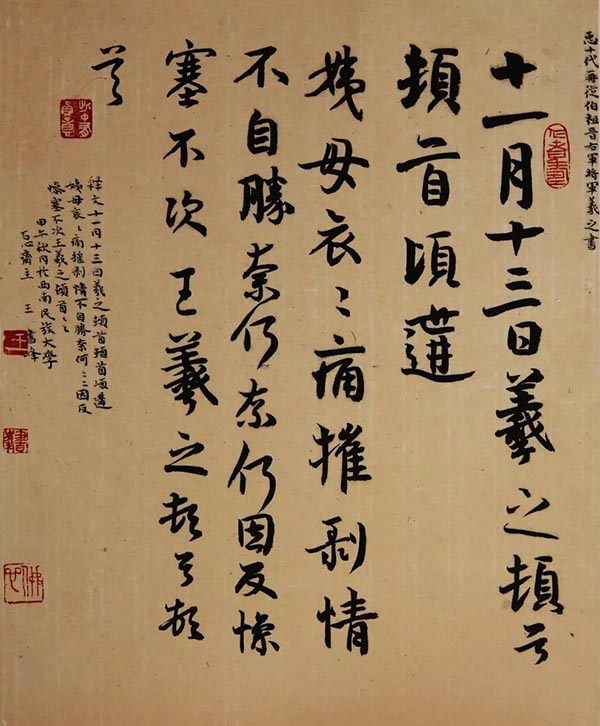 臣十代再從伯祖晋右軍将軍羲之書
十一月十三日羲之頓首
頓首頃遘
姨母哀〻痛摧剥情
不自勝奈何奈何因反慘
塞不次王羲之頓首頓
首
释文十一月十三日羲之頓首頓首頃遘
姨母哀〻痛摧剥情不自勝奈何〻〻因反
慘塞不次王羲之頓首〻〻
甲午秋月於西南民族大學
心齋主 王書峰
王
書峰